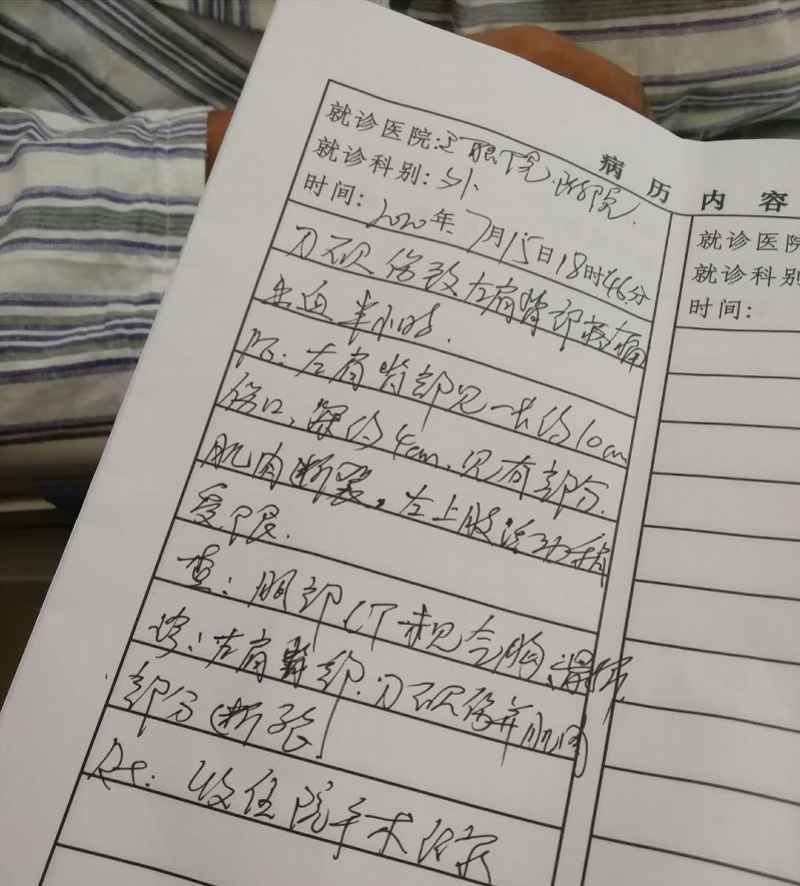 病历内容
就诊医院:医院附院
就诊科别:外
时间:2020年7月15日18时46分
刀砍伤致左肩背部疼痛
出血半小时.
左肩背部见一长约10cm
伤口,深约4cm,见有部分
肌肉断裂。左上肢活动稍
受限.
查:胸部CT未见气胸、
诊:左肩背部刀砍伤并肌肉
部分断裂
收住院手术治疗
就诊医院
就诊科别
时间: